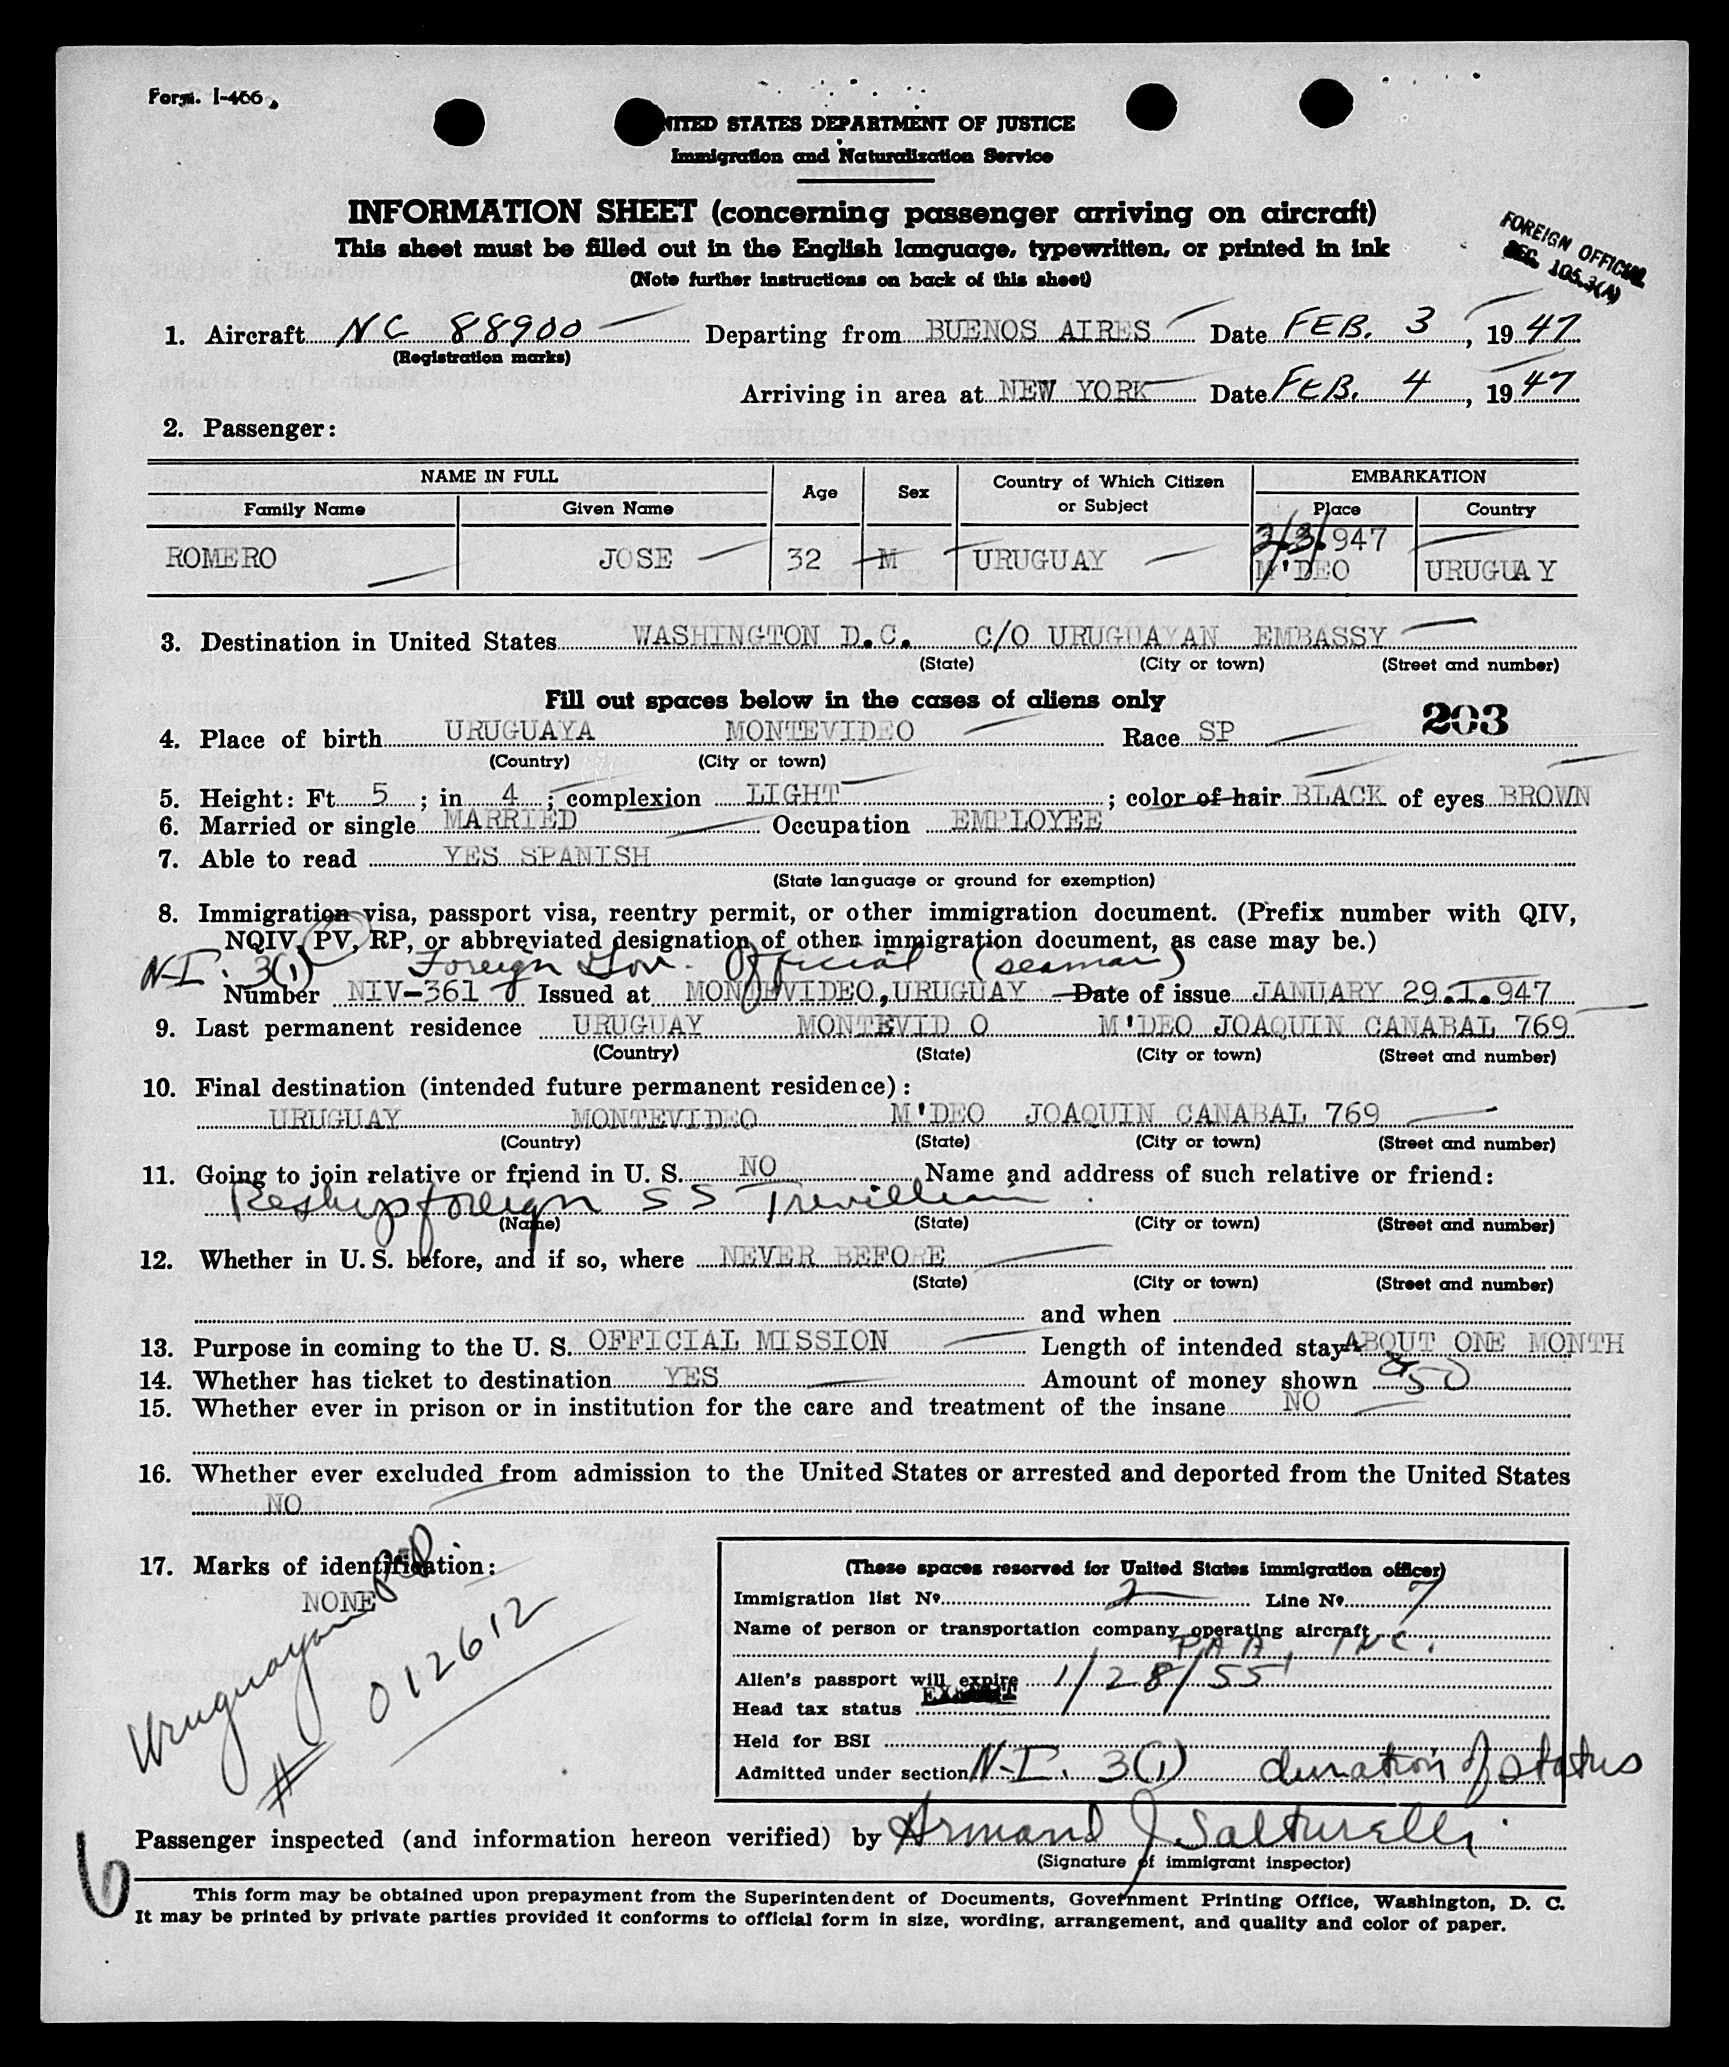 Form. I-466
UNITED STATES DEPARTMENT OF JUSTICE
Immigration and Naturalization Service
INFORMATION SHEET (concerning passenger arriving on aircraft)
This sheet must be filled out in the English language, typewritten, or printed in ink
(Note further instructions on back of this sheet)
FOREIGN OFFICIAL
SEC. 105.3(A)
1. Aircraft NC 88900 Departing from BUENOS AIRES Date FEB. 3, 1947
(Registration marks)
Arriving in area at NEW YORK Date FEB. 4, 1947
2. Passenger:
NAME IN FULL Age Sex Country of Which Citizen or Subject EMBARKATION
Family Name Given Name Place Country
3/3.947
ROMERO JOSE 32 M URUGUAY M'DEO URUGUAY
3. Destination in United States WASHINGTON D.C. C/O URUGUAYAN EMBASSY
(State) (City or town) (Street and number)
Fill out spaces below in the cases of aliens only
203
4. Place of birth URUGUAYA MONTEVIDEO Race SP
(Country) (City or town)
5. Height: Ft 5; in 4; complexion LIGHT; color of hair BLACK of eyes BROWN
6. Married or single MARRIED Occupation EMPLOYEE
7. Able to read YES SPANISH
(State language or ground for exemption)
8. Immigration visa, passport visa, reentry permit, or other immigration document. (Prefix number with QIV,
NQIV, PV, RP, or abbreviated designation of other immigration document, as case may be.)
N-I. 3(1) Foreign Gov. Official (seaman)
Number NIV-361 Issued at MONTEVIDEO, URUGUAY Date of issue JANUARY 29.I.947
9. Last permanent residence URUGUAY MONTEVID O M'DEO JOAQUIN CANABAL 769
(Country) (State) (City or town) (Street and number)
10. Final destination (intended future permanent residence):
URUGUAY MONTEVIDEO M'DEO JOAQUIN CANABAL 769
(Country) (State) (City or town) (Street and number)
11. Going to join relative or friend in U. S. NO Name and address of such relative or friend:
Reship foreign SS Trevillian
(Name) (State) (City or town) (Street and number)
12. Whether in U. S. before, and if so, where NEVER BEFORE
(State) (City or town) (Street and number)
and when
13. Purpose in coming to the U. S. OFFICIAL MISSION Length of intended stay ABOUT ONE MONTH
14. Whether has ticket to destination YES Amount of money shown $50
15. Whether ever in prison or in institution for the care and treatment of the insane NO
16. Whether ever excluded from admission to the United States or arrested and deported from the United States
NO
17. Marks of identification:
NONE
Uruguayan
# 012612
(These spaces reserved for United States immigration officer)
Immigration list No. 2 Line No. 7
Name of person or transportation company operating aircraft
PAA, INC.
Alien's passport will expire 1/28/55
Head tax status EXEMPT
Held for BSI
Admitted under section N-I. 3(1) duration of status
Passenger inspected (and information hereon verified) by Armand J Salturelli
(Signature of immigrant inspector)
6
This form may be obtained upon prepayment from the Superintendent of Documents, Government Printing Office, Washington, D. C.
It may be printed by private parties provided it conforms to official form in size, wording, arrangement, and quality and color of paper.